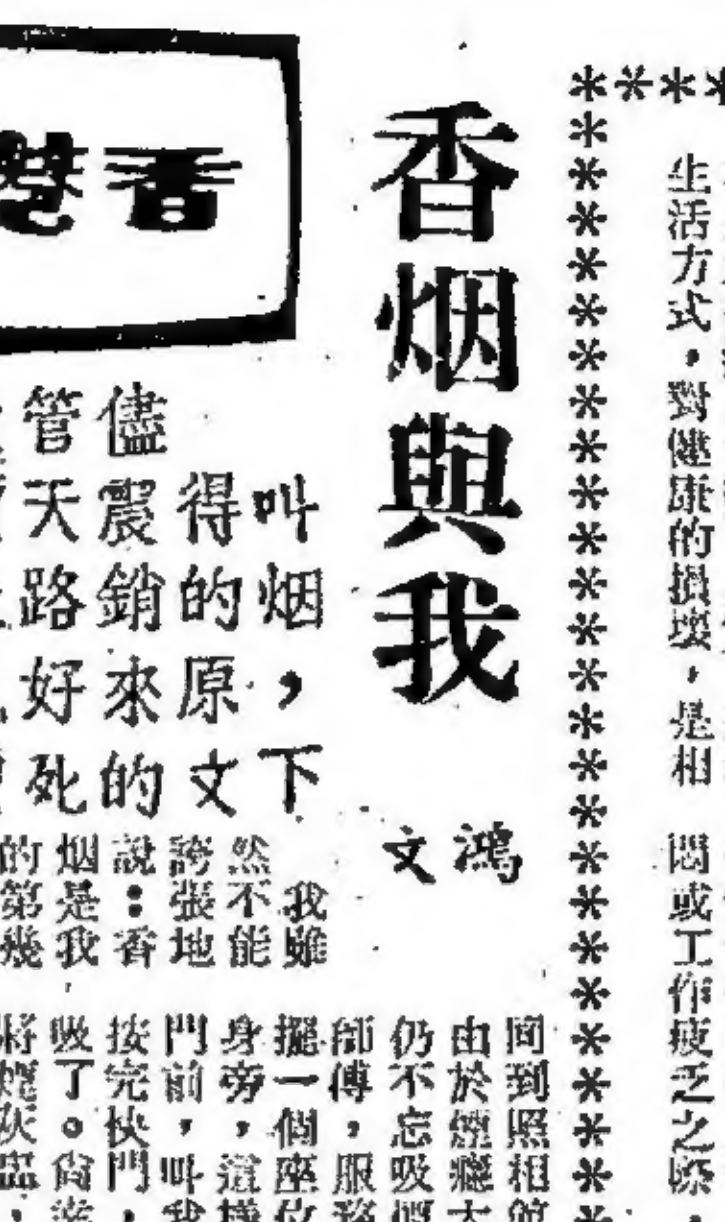 生活方式，對健康的損壞，是相
悶或工作疲乏之際，
香烟與我
鴻文
香
儘管
叫得震天
烟的銷路
，原來好
下文的死
我雖
然不能
誇張地
說：香
烟是我
的第幾
同到照相館
由於煙癮大
仍不忘吸
師傅，服務
擺一個座位
身旁，這樣
門前，叫我
按完快門，
吸了。尚
將煙灰缸，